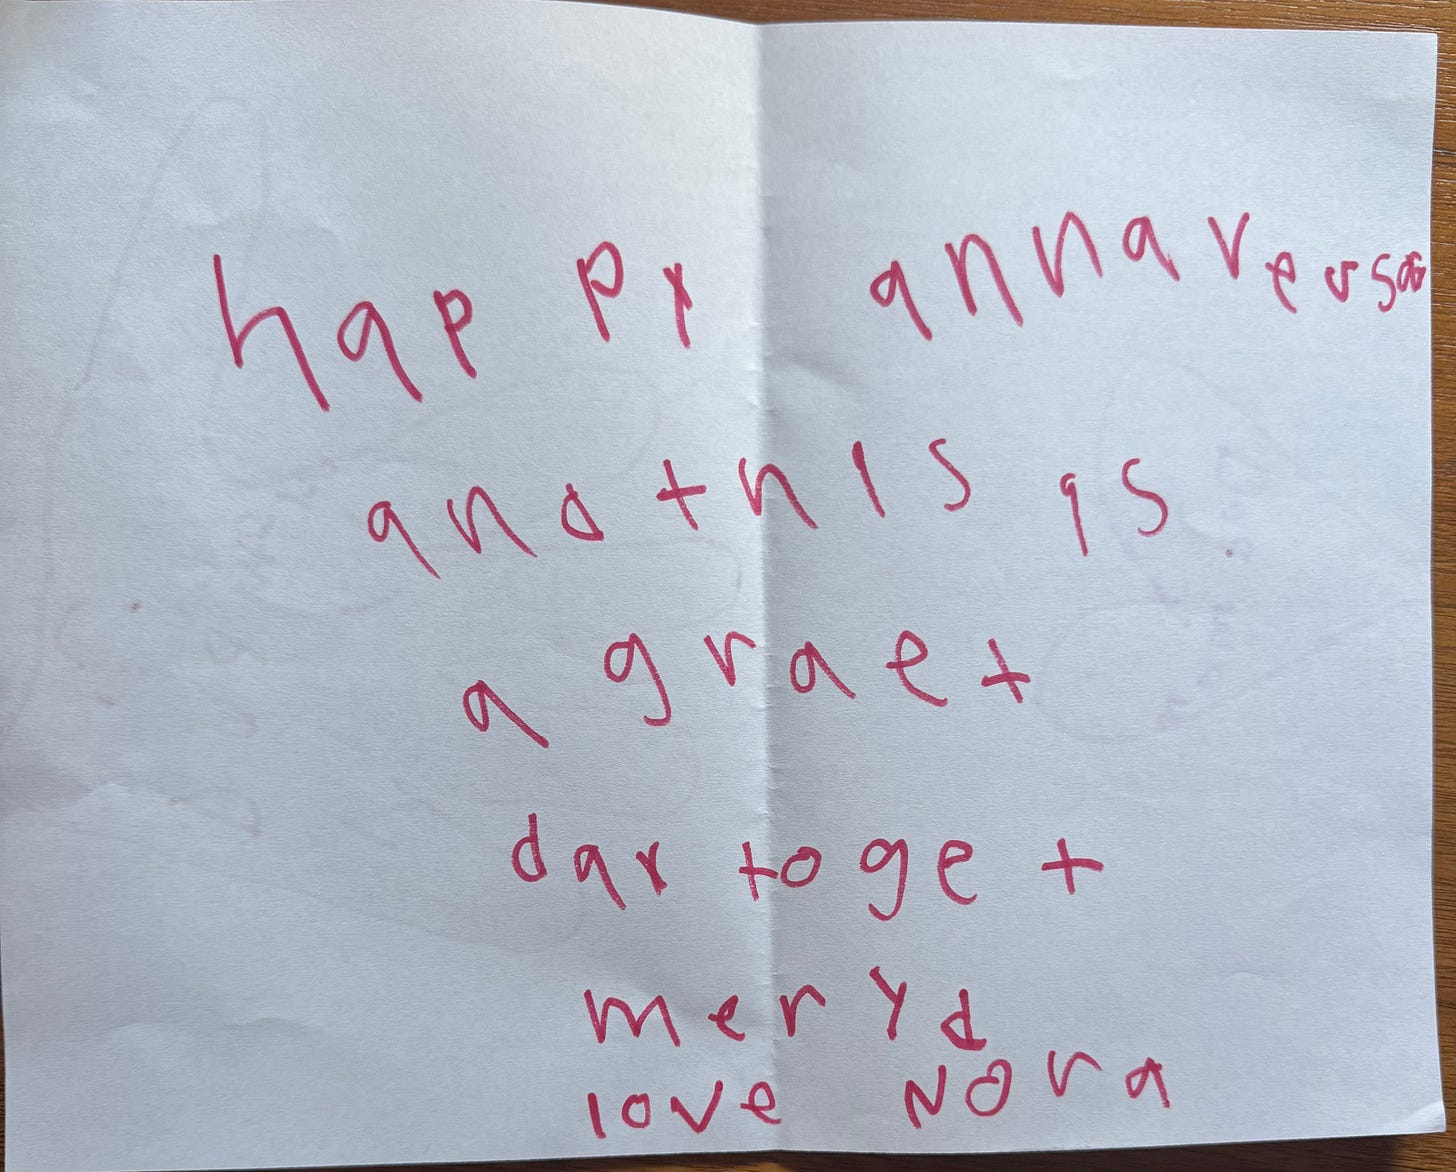 happy annaversa
and this is
a graet
day to get
meryd
love Nora